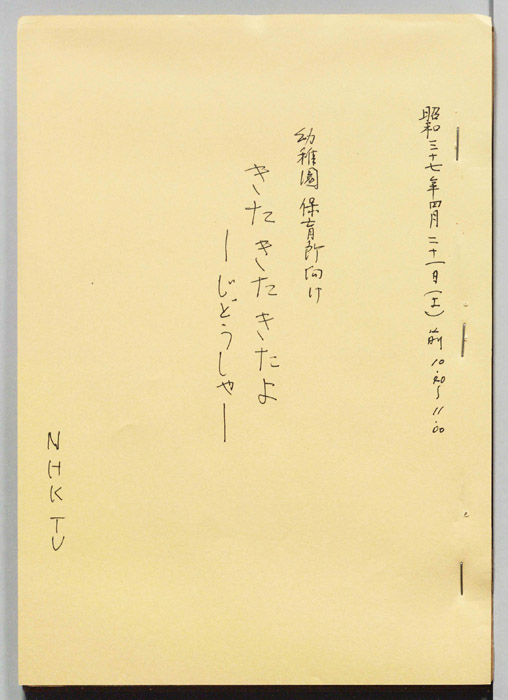 昭和三十七年四月二十一日(土)前10.40〜11.00
幼稚園 保育所向け
きた きたきたよ
ーじどうしゃー
NHK TV